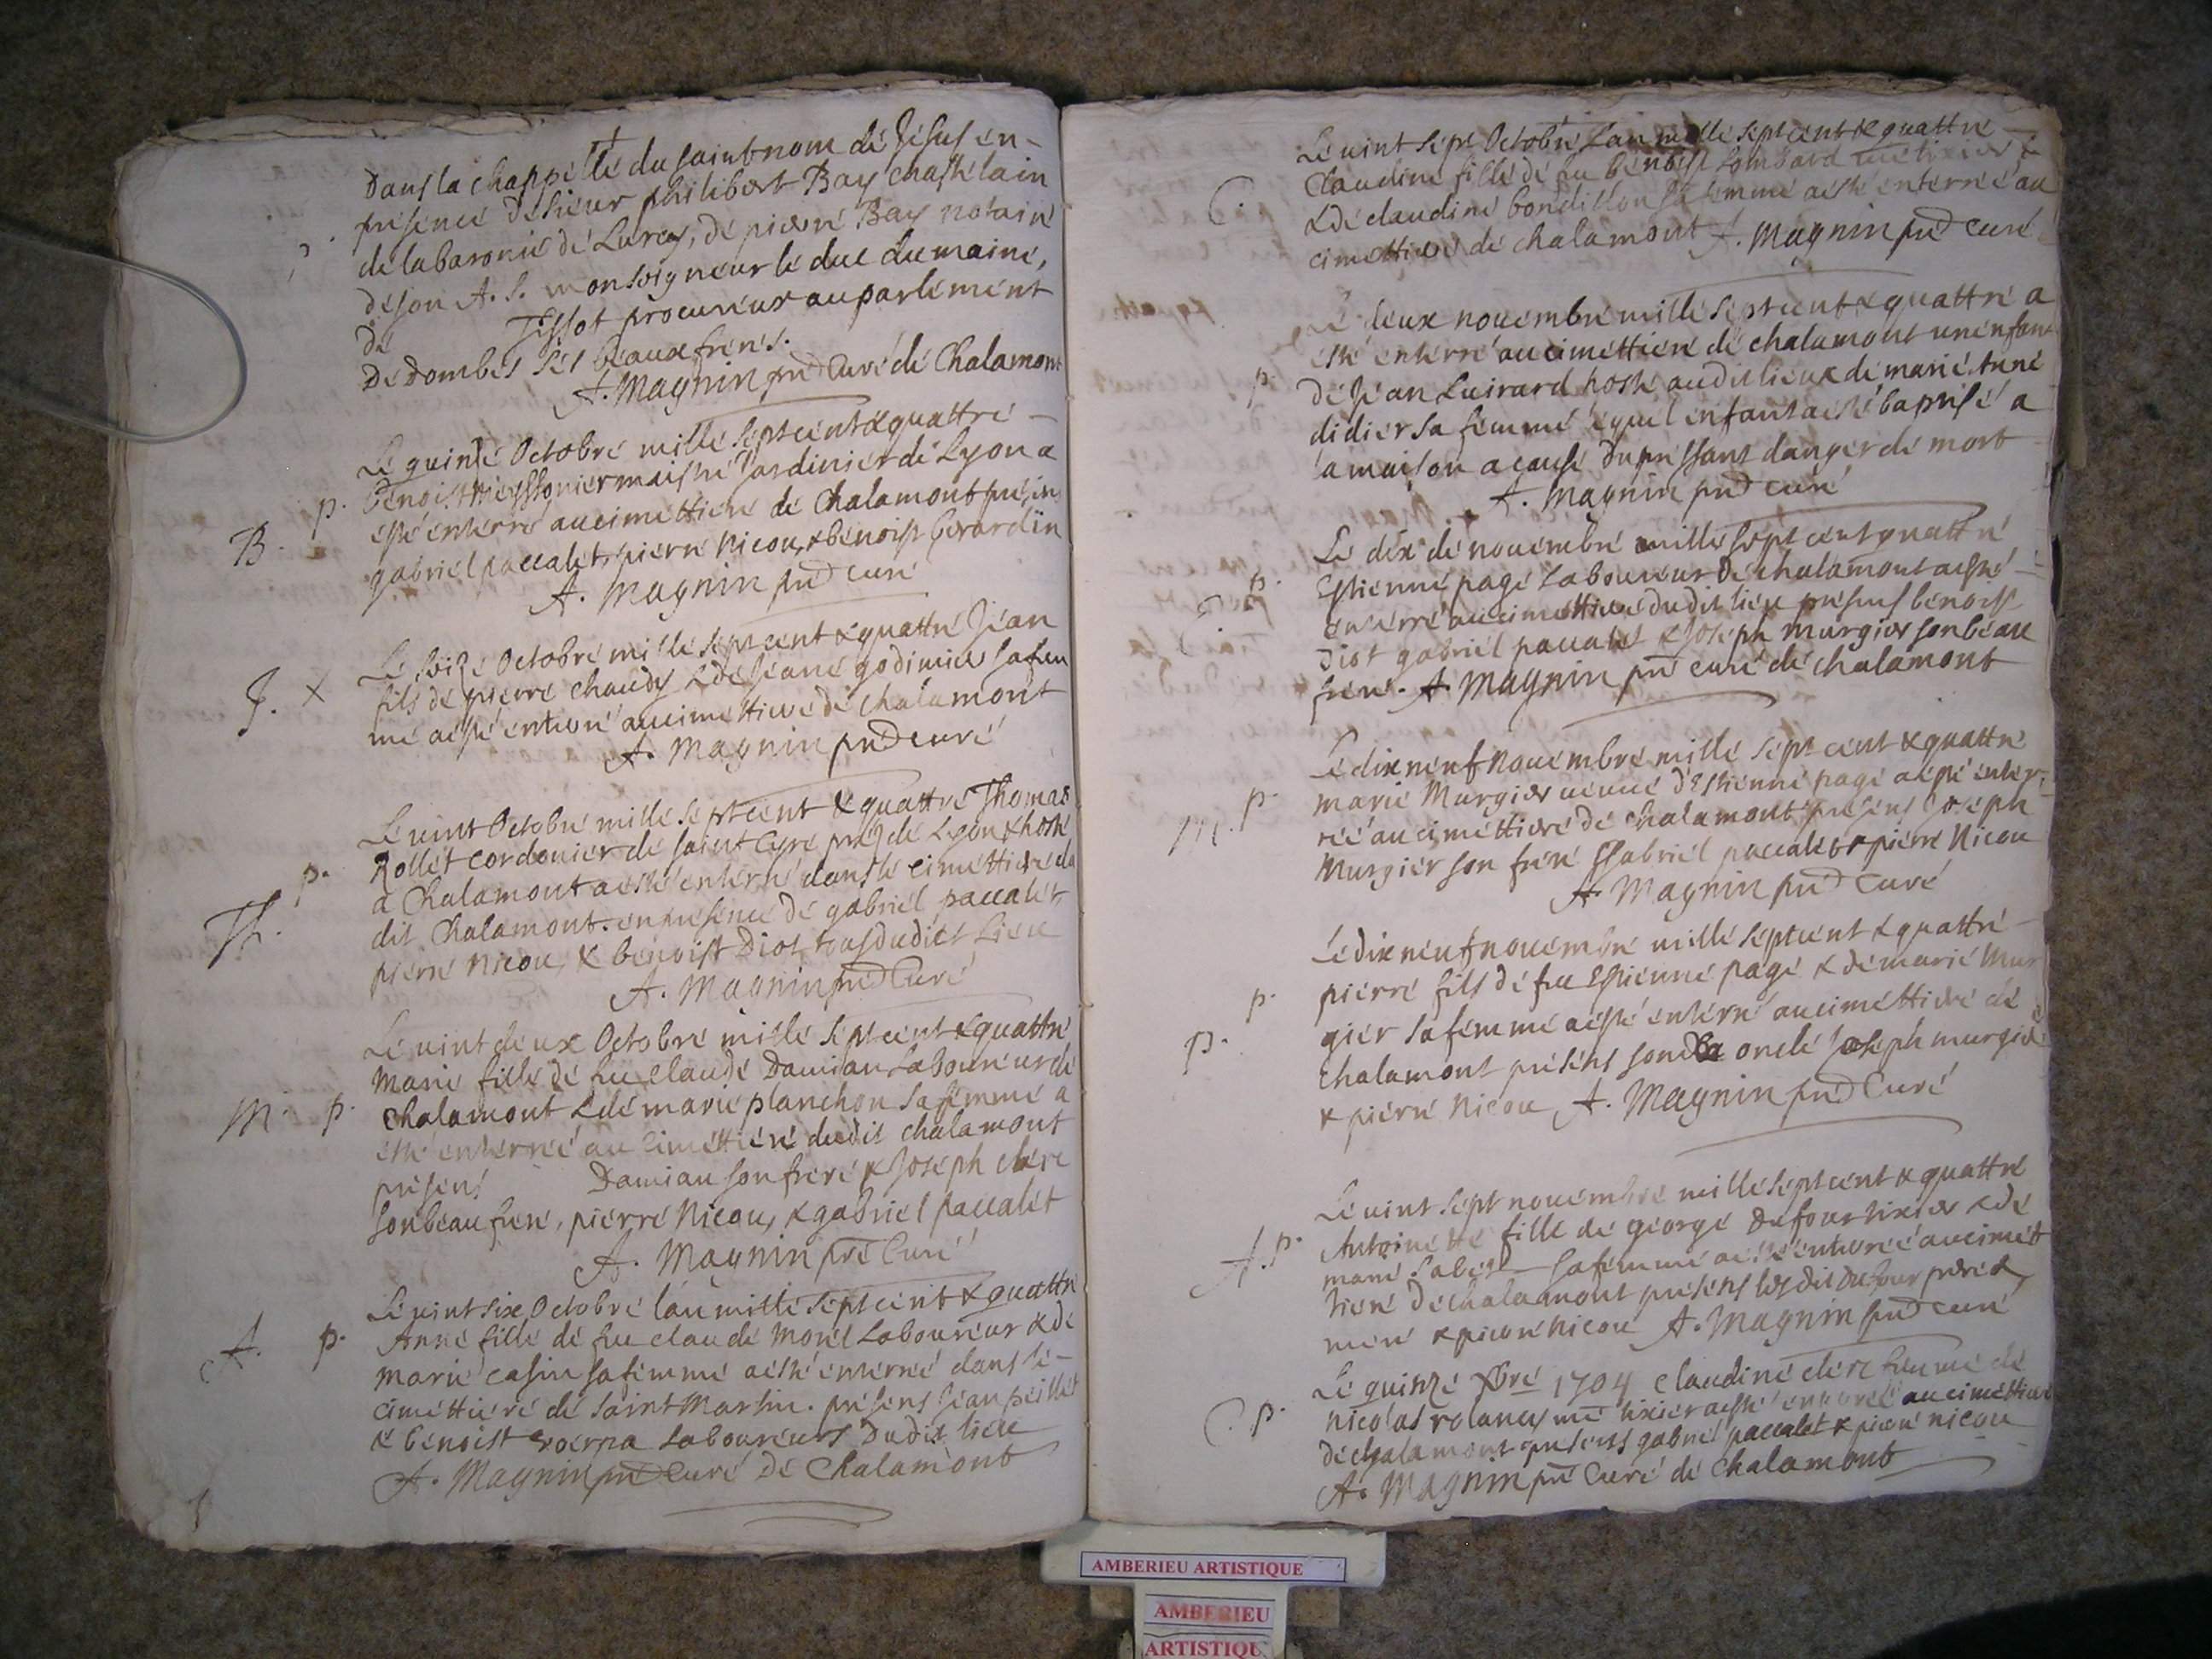 Dans la chappelle du saint nom de Jesus en-
presence de sieur philibert Bay chastelain
de la baronie de Lurcy, de pierre Bay notaire
de son A. S. monseigneur le duc du maine,
de Tissot procureur au parlement
de dombes ses beaux freres.
A. Magnin pre Curé de Chalamont
Le quinze Octobre mille sept cent & quattre
p.
Benoist maistre Jardinier de Lyon a
B.
esté enterré au cimettiere de Chalamont
gabriel paccalet, pierre Nicou, & benoist Gerardin
A. Magnin pre curé
Le seize Octobre mille sept cent & quattre Jean
J. X
fils de pierre chaudy & de Jeane godimier sa fem
me a esté enterré au cimettiere de Chalamont
A. Magnin pre curé
Le vint Octobre mille sept cent & quattre Thomas
p.
Rollet cordonier de saint Cyre prez de Lyon & hoste
a Chalamont a esté enterré dans le cimettiere du
Th.
dit Chalamont. en presence de gabriel paccalet,
pierre Nicou, & benoist Diot, tous dudict Lieu
A. Magnin pre Curé
Le vint deux Octobre mille sept cent & quattre
Marie fille de feu Claude Damian Laboureur de
M. p.
Chalamont & de marie planchon sa femme a
esté enterreé au Cimettiere dudit Chalamont
presens Damian son frere & Joseph clerc
son beau frere, pierre Nicou, & gabriel paccalet
A. Magnin pre Curé
Le vint six Octobre l'an mille sept cent & quattre
A. p.
Anne fille de feu claude Morel Laboureur & de
marie casin sa femme a esté enterreé dans le-
cimettiere de Saint Martin. presens Jean peillet
& benoist Laboureurs Dudit lieu
A. Magnin pre Curé De Chalamont
Le vint sept Octobre l'an mille sept cent & quattre
C.
Claudine fille de feu benoist Lombard
& de claudine bondillon sa femme a esté enterreé au
cimettiere de chalamont A. Magnin pre Curé
Le deux novembre mille sept cent & quattre a
esté enterré au cimettiere de chalamont un enfant
p.
de Jean Luirard hoste audit lieu & de marie Anne
didier sa femme lequel enfant a esté baptisé a
la maison a cause du pressant danger de mort
A. Magnin pre curé
Le dix de novembre mille sept cent quattre
p.
Estienne page Laboureur de chalamont a esté
enterré au cimettiere dudit lieu presens benoist
Diot gabriel paccalet & Joseph murgier son beau
frere. A. Magnin pre curé de chalamont
Le dix neuf novembre mille sept cent & quattre
p.
marie Murgier veuve d'Estienne page a esté enter-
M.
reé au cimettiere de chalamont presens Joseph
Murgier son frere Gabriel paccalet & pierre Nicou
A. Magnin pre Curé
Le dix neuf novembre mille sept cent & quattre
p.
pierre fils de feu Estienne page & de marie Mur
p.
gier sa femme a esté enterré au cimettiere de
chalamont presens son oncle Joseph murgier
& pierre Nicou A. Magnin pre Curé
Le vint sept novembre mille sept cent & quattre
A. p.
Antoinette fille de george Dufour tixier & de
marie sa femme a esté enterreé au cimet
tiere de chalamont presens lesdit Dufour pere &
mere & pierre Nicou A. Magnin pre curé
Le quinze Xbre 1704 claudine clerc femme de
C. p.
nicolas rolancy me tixier a esté enterreé au cimettiere
de chalamont presens gabriel paccalet & pierre nicou
A. Magnin pre Curé de Chalamont
AMBERIEU ARTISTIQUE
AMBERIEU
ARTISTIQU